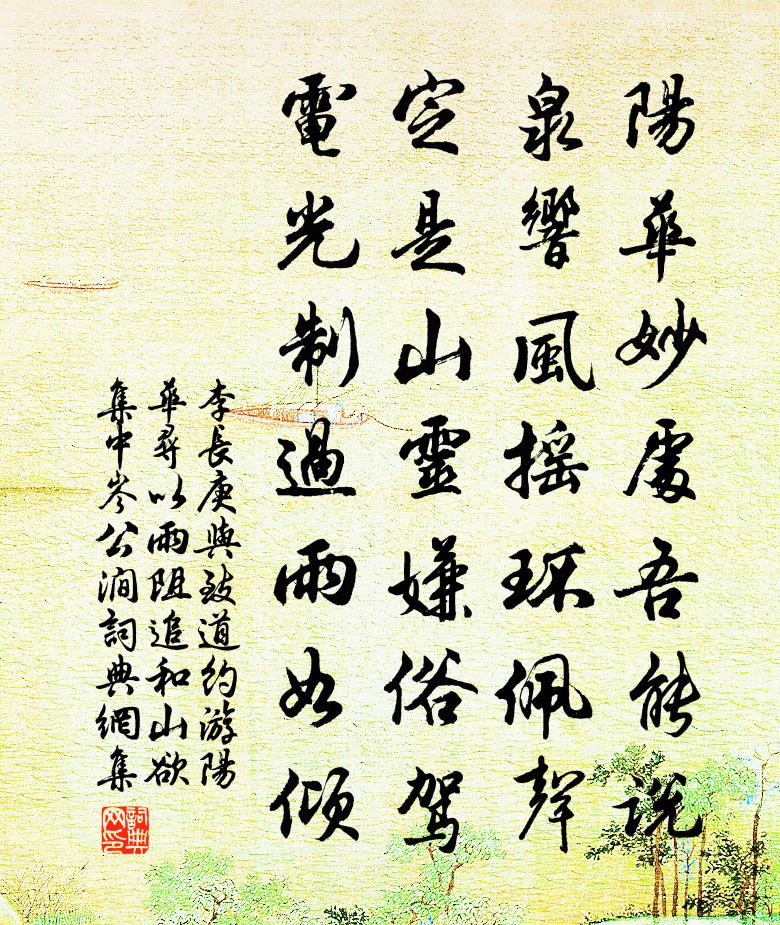 陽華妙處吾能説
泉響風摇環佩聲
定是山靈嫌俗駕
電光制過雨如傾
李長庚與致道約游陽
華尋以雨阻追和山欲
集中岑公澗詞典網集
詞典
网印